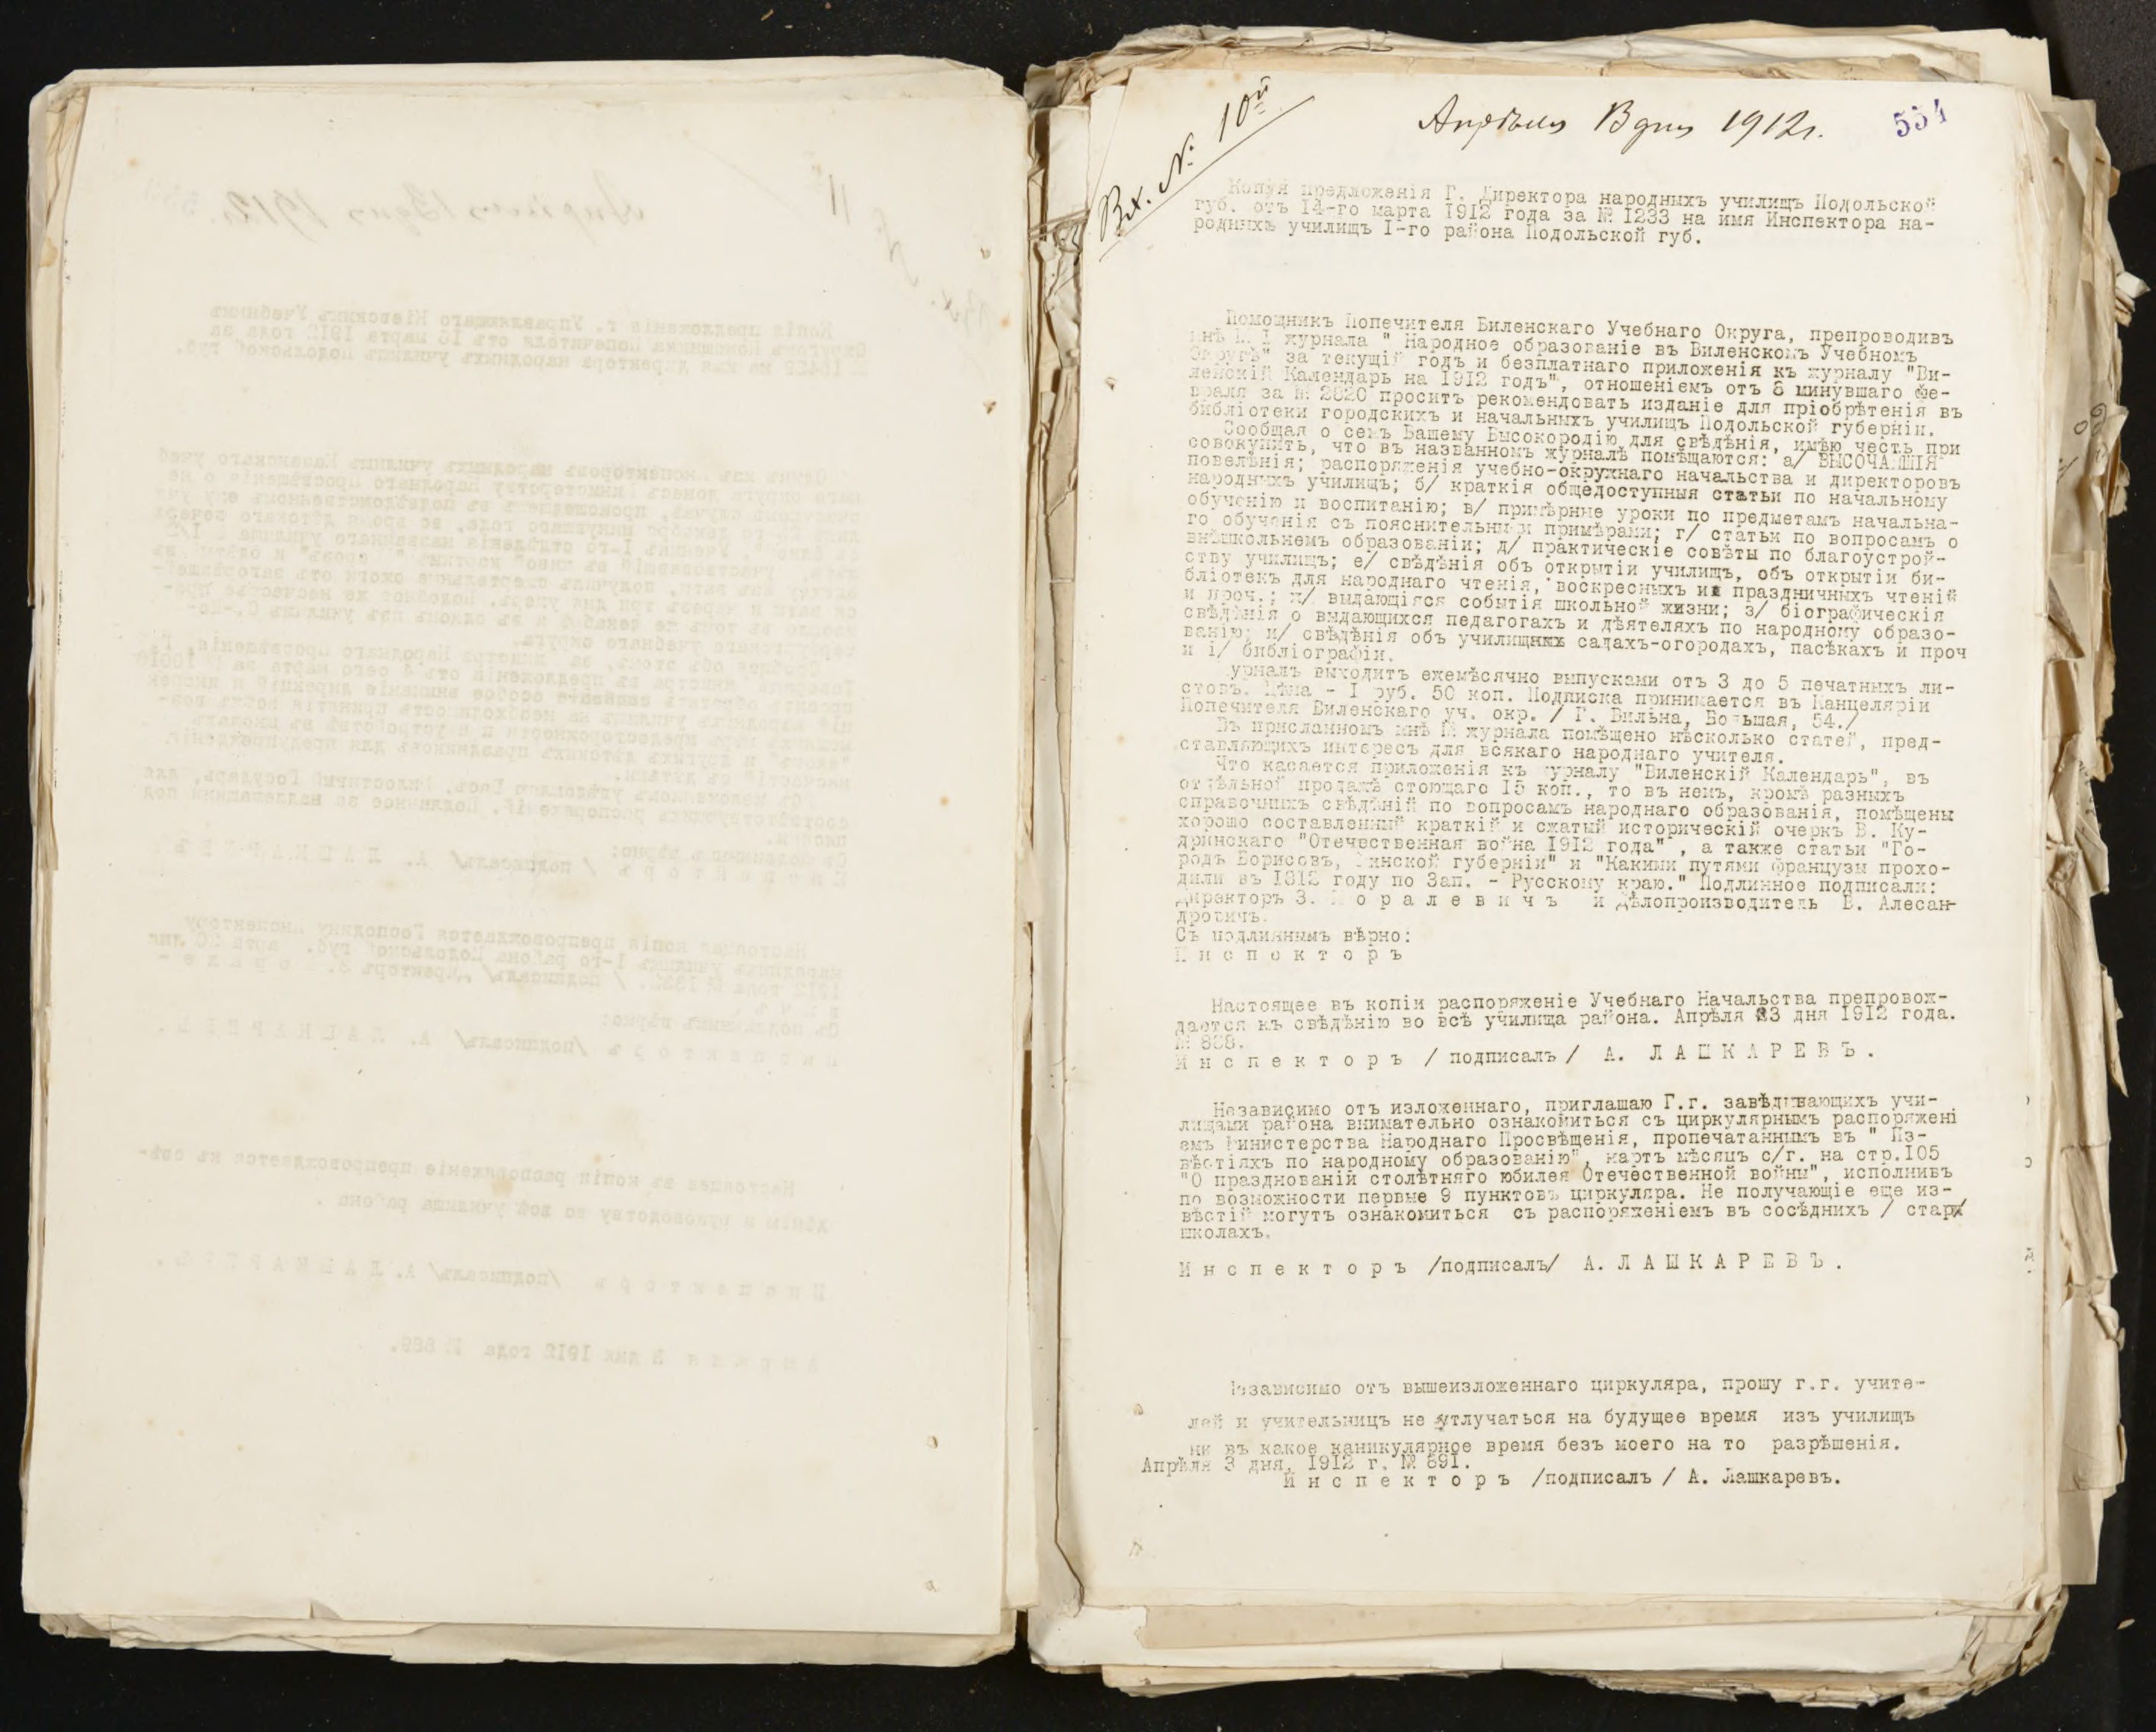 Вх. № 10й
Апрѣля 13 дня 1912 г.
554
Копія предложенія Г. Директора народныхъ училищъ Подольской
губ. отъ 14-го марта 1912 года за № 1233 на имя Инспектора на-
родныхъ училищъ I-го района Подольской губ.
Помощникъ Попечителя Виленскаго Учебнаго Округа, препроводивъ
мнѣ № I журнала " Народное образованіе въ Виленскомъ Учебномъ
Округѣ" за текущій годъ и безплатнаго приложенія къ журналу "Ви-
ленскій Календарь на 1912 годъ", отношеніемъ отъ 8 минувшаго фе-
враля за № 2820 проситъ рекомендовать изданіе для пріобрѣтенія въ
библіотеки городскихъ и начальныхъ училищъ Подольской губерніи.
Сообщая о семъ Вашему Высокородію для свѣдѣнія, имѣю честь при
совокупить, что въ названномъ журналѣ помѣщаются: а/ ВЫСОЧАЙШІЯ
повелѣнія; распоряженія учебно-окружнаго начальства и директоровъ
народныхъ училищъ; б/ краткія общедоступныя статьи по начальному
обученію и воспитанію; в/ примѣрные уроки по предметамъ начальна-
го обученія съ пояснительными примѣрами; г/ статьи по вопросамъ о
внѣшкольнемъ образованіи; д/ практическіе совѣты по благоустрой-
ству училищъ; е/ свѣдѣнія объ открытіи училищъ, объ открытіи би-
бліотекъ для народнаго чтенія, воскресныхъ и праздничныхъ чтеній
и проч.; ж/ выдающіяся событія школьной жизни; з/ біографическія
свѣдѣнія о выдающихся педагогахъ и дѣятеляхъ по народному образо-
ванію; и/ свѣдѣнія объ училищныхъ садахъ-огородахъ, пасѣкахъ и проч
и і/ библіографіи.
Журналъ выходитъ ежемѣсячно выпусками отъ 3 до 5 печатныхъ ли-
стовъ. Цѣна - I руб. 50 коп. Подписка принимается въ Канцеляріи
Попечителя Виленскаго уч. окр. / Г. Вильна, Большая, 54./
Въ присланномъ мнѣ № журнала помѣщено нѣсколько статей, пред-
ставляющихъ интересъ для всякаго народнаго учителя.
Что касается приложенія къ журналу "Виленскій Календарь", въ
отдѣльной продажѣ стоющаго 15 коп., то въ немъ, кромѣ разныхъ
справочныхъ свѣдѣній по вопросамъ народнаго образованія, помѣщены
хорошо составленный краткій и сжатый историческій очеркъ В. Ку-
дринскаго "Отечественная война 1912 года" , а также статьи "Го-
родъ Борисовъ, Минской губерніи" и "Какими путями французы прохо-
дили въ 1812 году по Зап. - Русскому краю." Подлинное подписали:
Директоръ З. М о р а л е в и ч ъ и Дѣлопроизводитель В. Алесан-
дровичъ.
Съ подлиннымъ вѣрно:
И н с п е к т о р ъ
Настоящее въ копіи распоряженіе Учебнаго Начальства препровож-
дается къ свѣдѣнію во всѣ училища района. Апрѣля 3 дня 1912 года.
№ 888.
И н с п е к т о р ъ / подписалъ / А. Л А Ш К А Р Е В Ъ .
Независимо отъ изложеннаго, приглашаю Г.г. завѣдывающихъ учи-
лищами района внимательно ознакомиться съ циркулярнымъ распоряжені
емъ Министерства Народнаго Просвѣщенія, пропечатаннымъ въ " Из-
вѣстіяхъ по народному образованію", мартъ мѣсяцъ с/г. на стр.105
"О празднованіи столѣтняго юбилея Отечественной войны", исполнивъ
по возможности первые 9 пунктовъ циркуляра. Не получающіе еще из-
вѣстій могутъ ознакомиться съ распоряженіемъ въ сосѣднихъ / стар/
школахъ.
И н с п е к т о р ъ /подписалъ/ А. Л А Ш К А Р Е В Ъ .
Независимо отъ вышеизложеннаго циркуляра, прошу г.г. учите-
лей и учительницъ не отлучаться на будущее время изъ училищъ
ни въ какое каникулярное время безъ моего на то разрѣшенія.
Апрѣля 3 дня, 1912 г. № 891.
И н с п е к т о р ъ /подписалъ / А. Лашкаревъ.